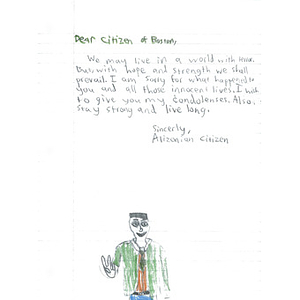 Dear Citizen of Boston,
We may live in a world with
But, with hope and strength we shall
prevail. I am sorry for what happened to
you and all those innocent lives. I
to give you my condolenses. Also,
stay strong and live long.
Sincerly,
Atizonian Citizen